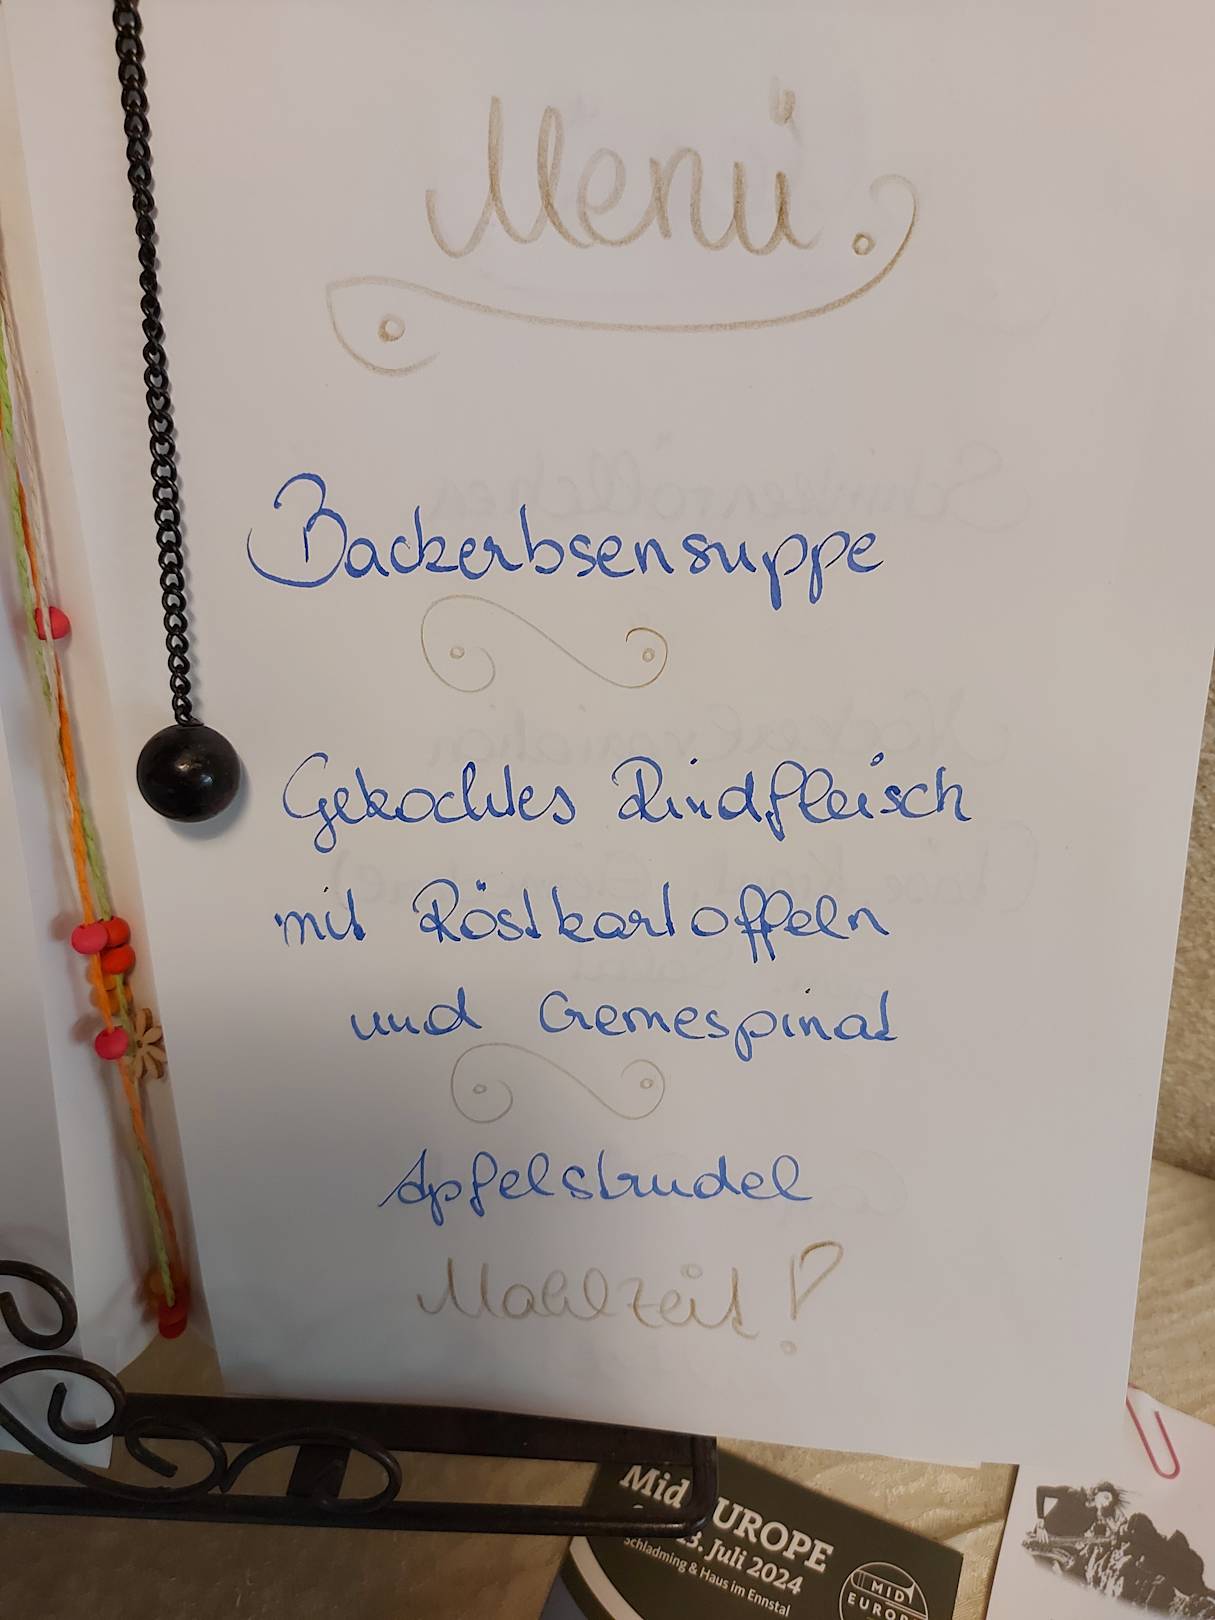 Menü
Backerbsensuppe
Gekochtes Rindfleisch
mit Röstkartoffeln
und Cremespinat
Apfelstrudel
Mahlzeit!
Mid EUROPE
3. Juli 2024
Schladming & Haus im Ennstal
MID
EUROP